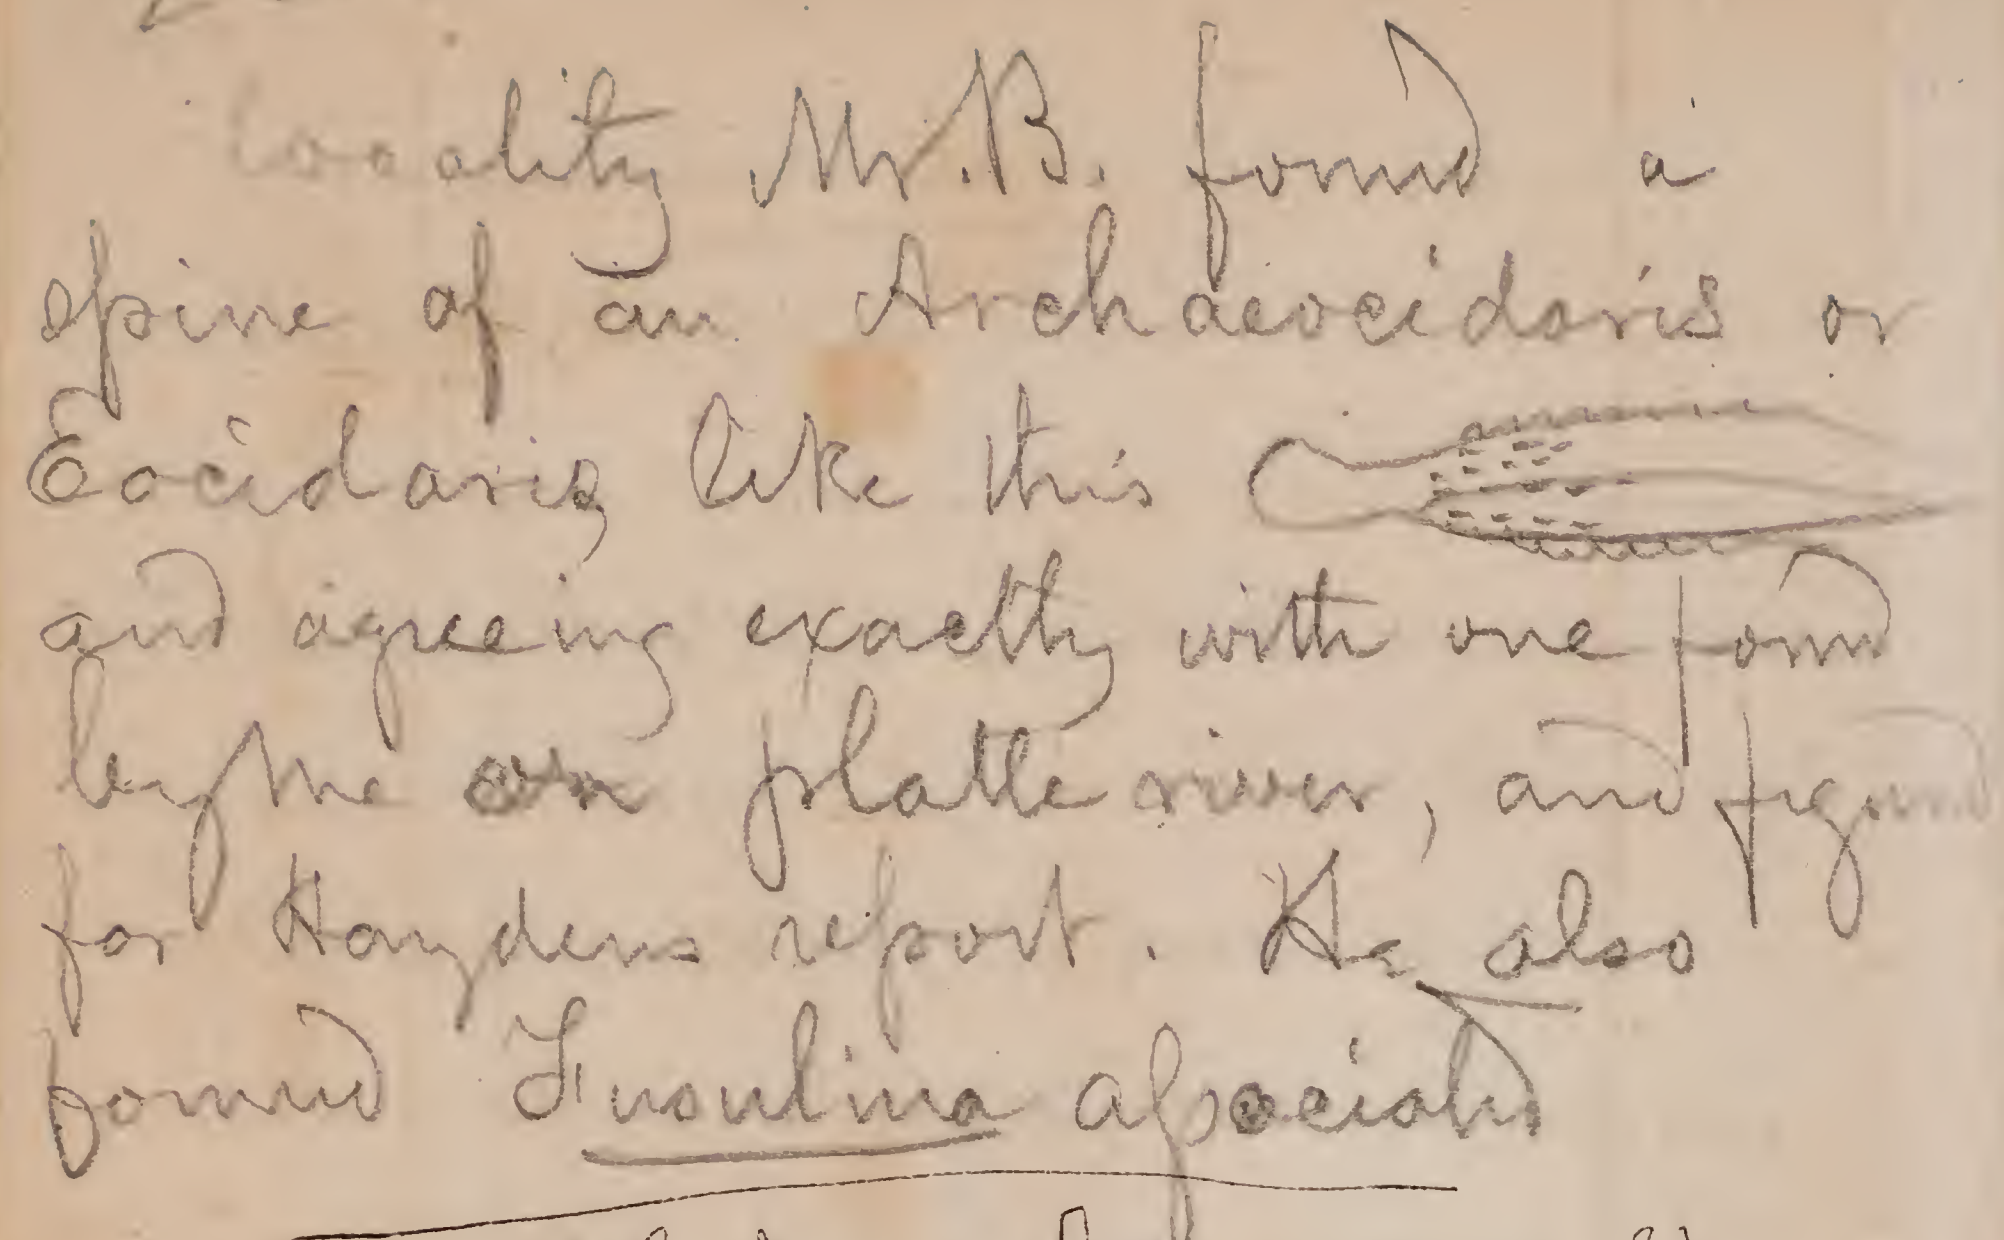 locality Mr. B. found a
spine of an Archaeocidaris or
Eocidaris, like this
and agreeing exactly with one found
by me on platte river, and figured
for Haydens report. He also
found Fusulina associated